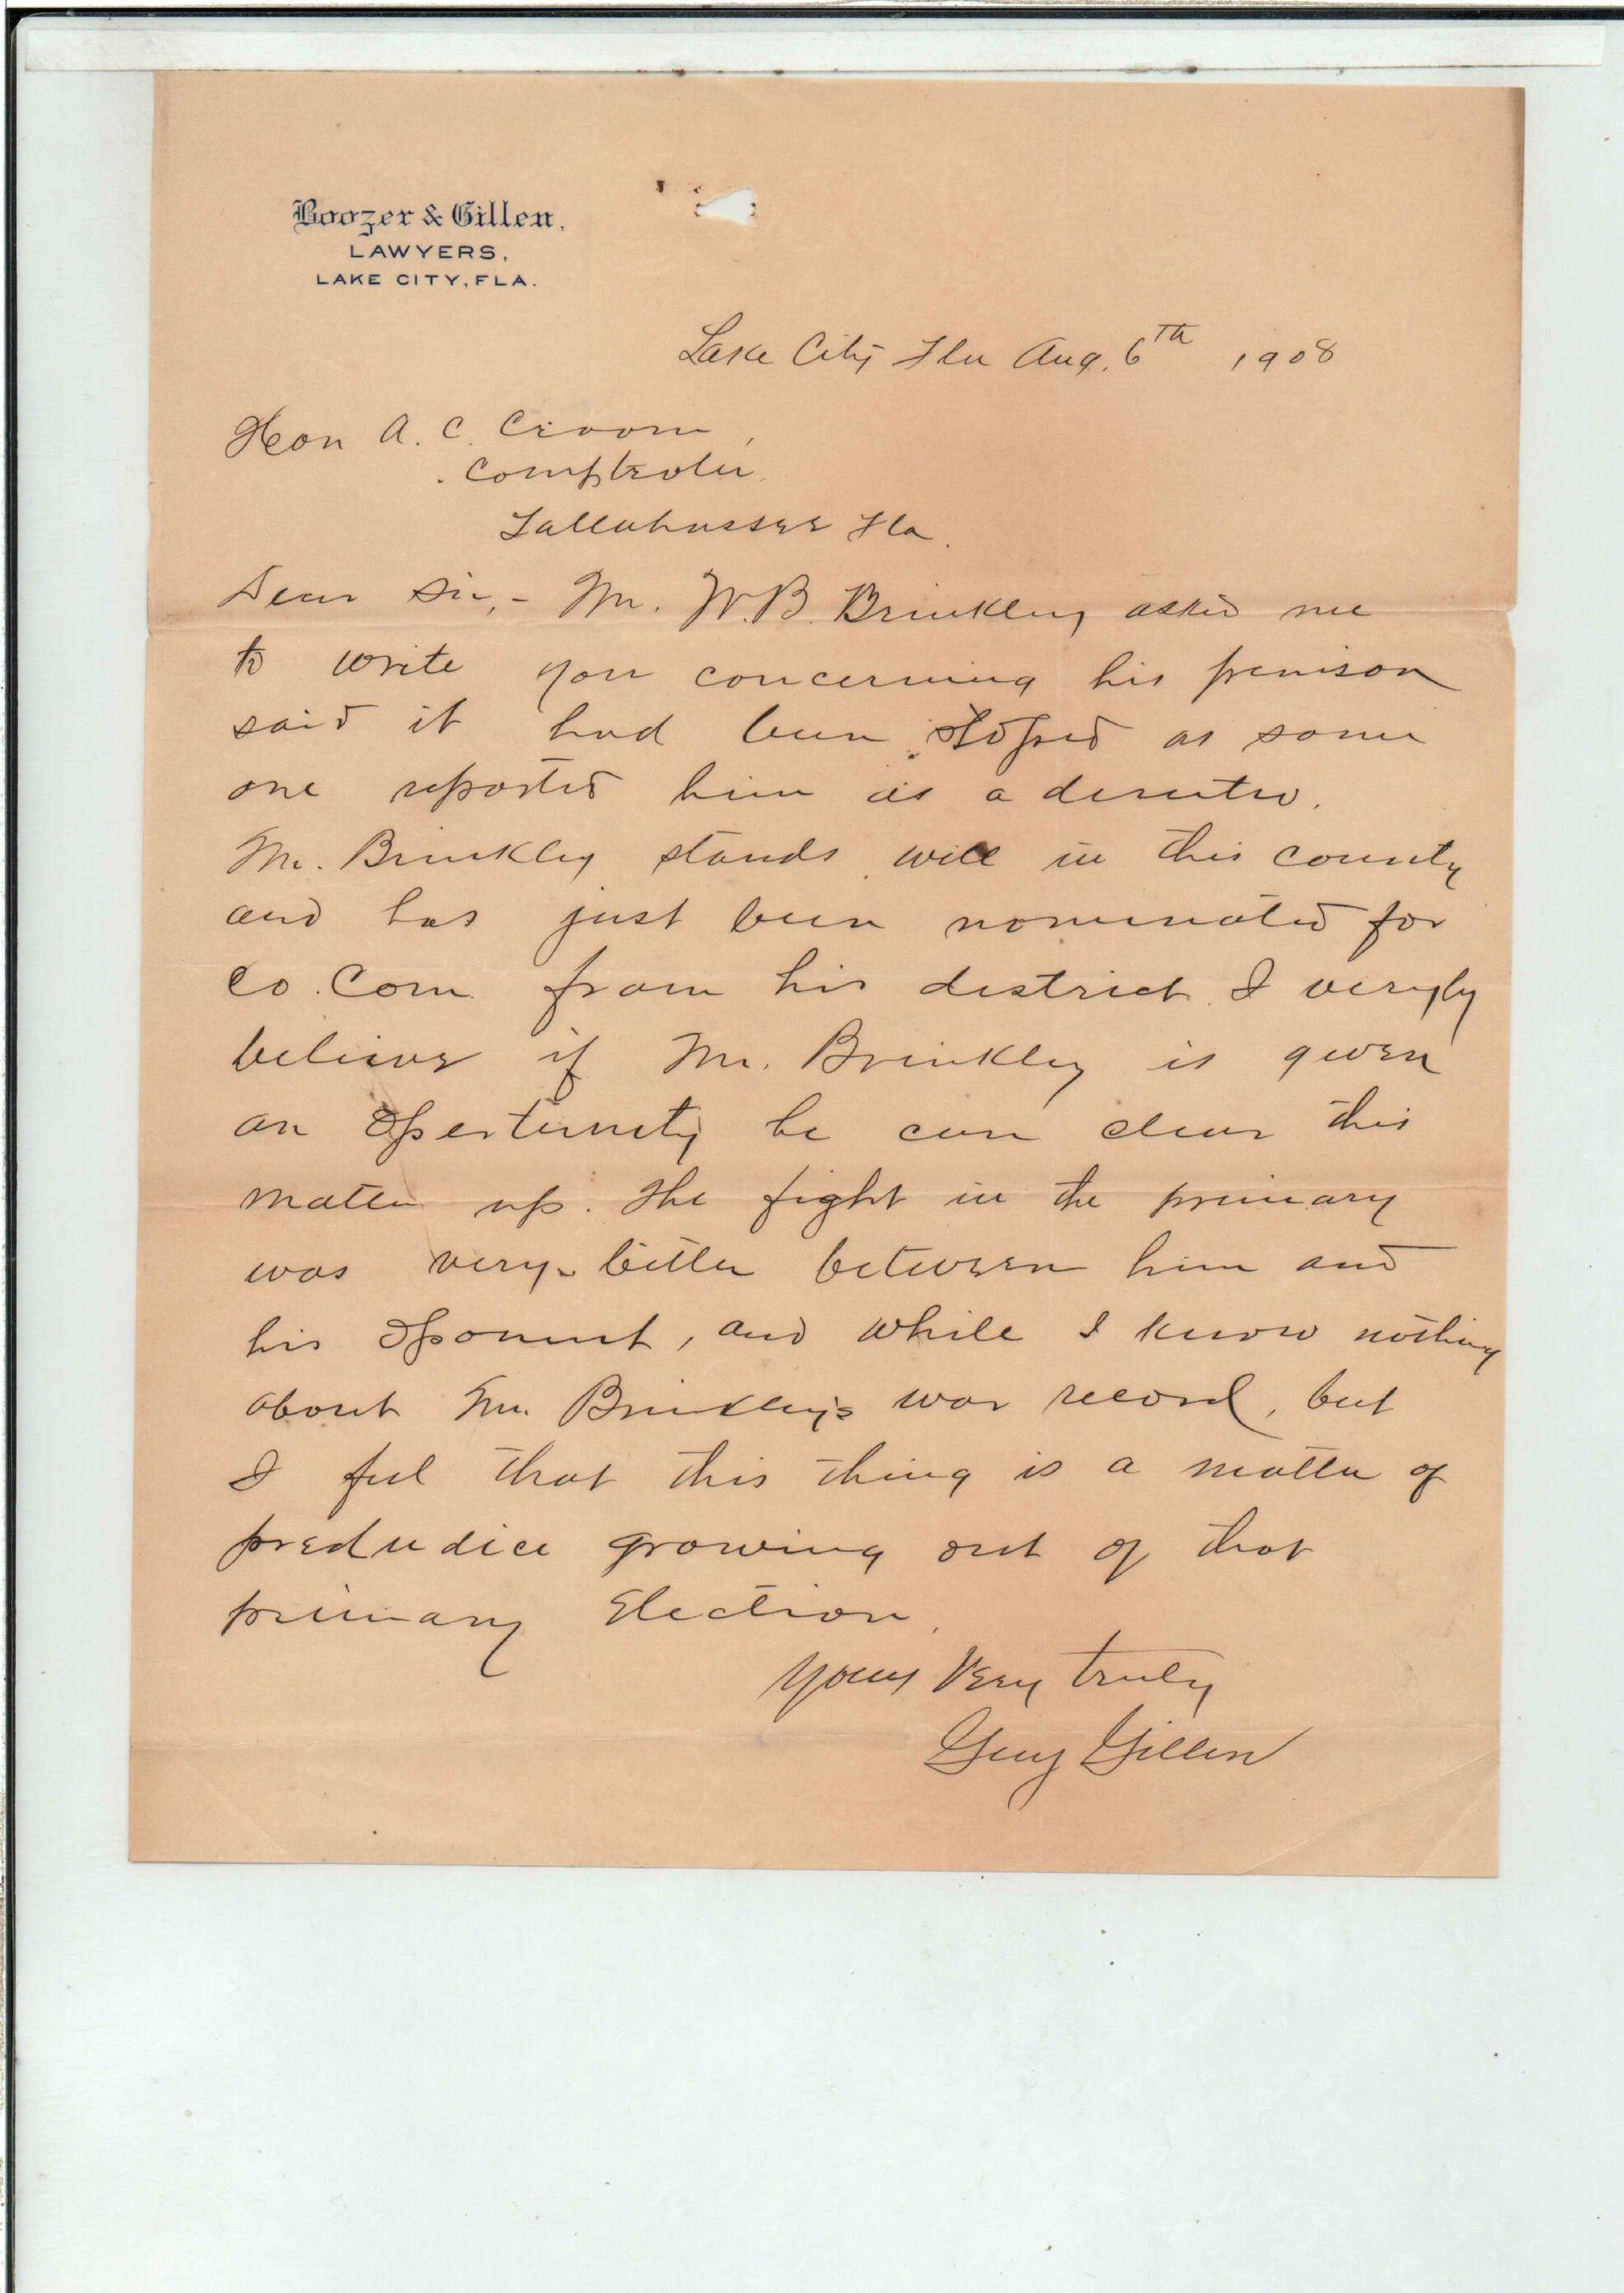 Boozer & Gillen,
LAWYERS,
LAKE CITY, FLA.
Lake City Fla Aug. 6th 1908
Hon A. C. Croom,
Comptroler.
Tallahassee Fla.
Dear Sir,- Mr. W. B. Brinkley asked me
to write you concerning his penison
said it had been stoped as some
one reported him as a deserter.
Mr. Brinkley stands well in this county
and has just been nominated for
Co. Com. from his district. I veryly
believe if Mr. Brinkley is given
an opertunity he can clear this
matter up. The fight in the primary
was very bitter between him and
his oponent, and while I know nothing
about Mr. Brinkley's war record, but
I feel that this thing is a matter of
predudice growing out of that
primary Election.
Yours Very truly
Guy Gillen